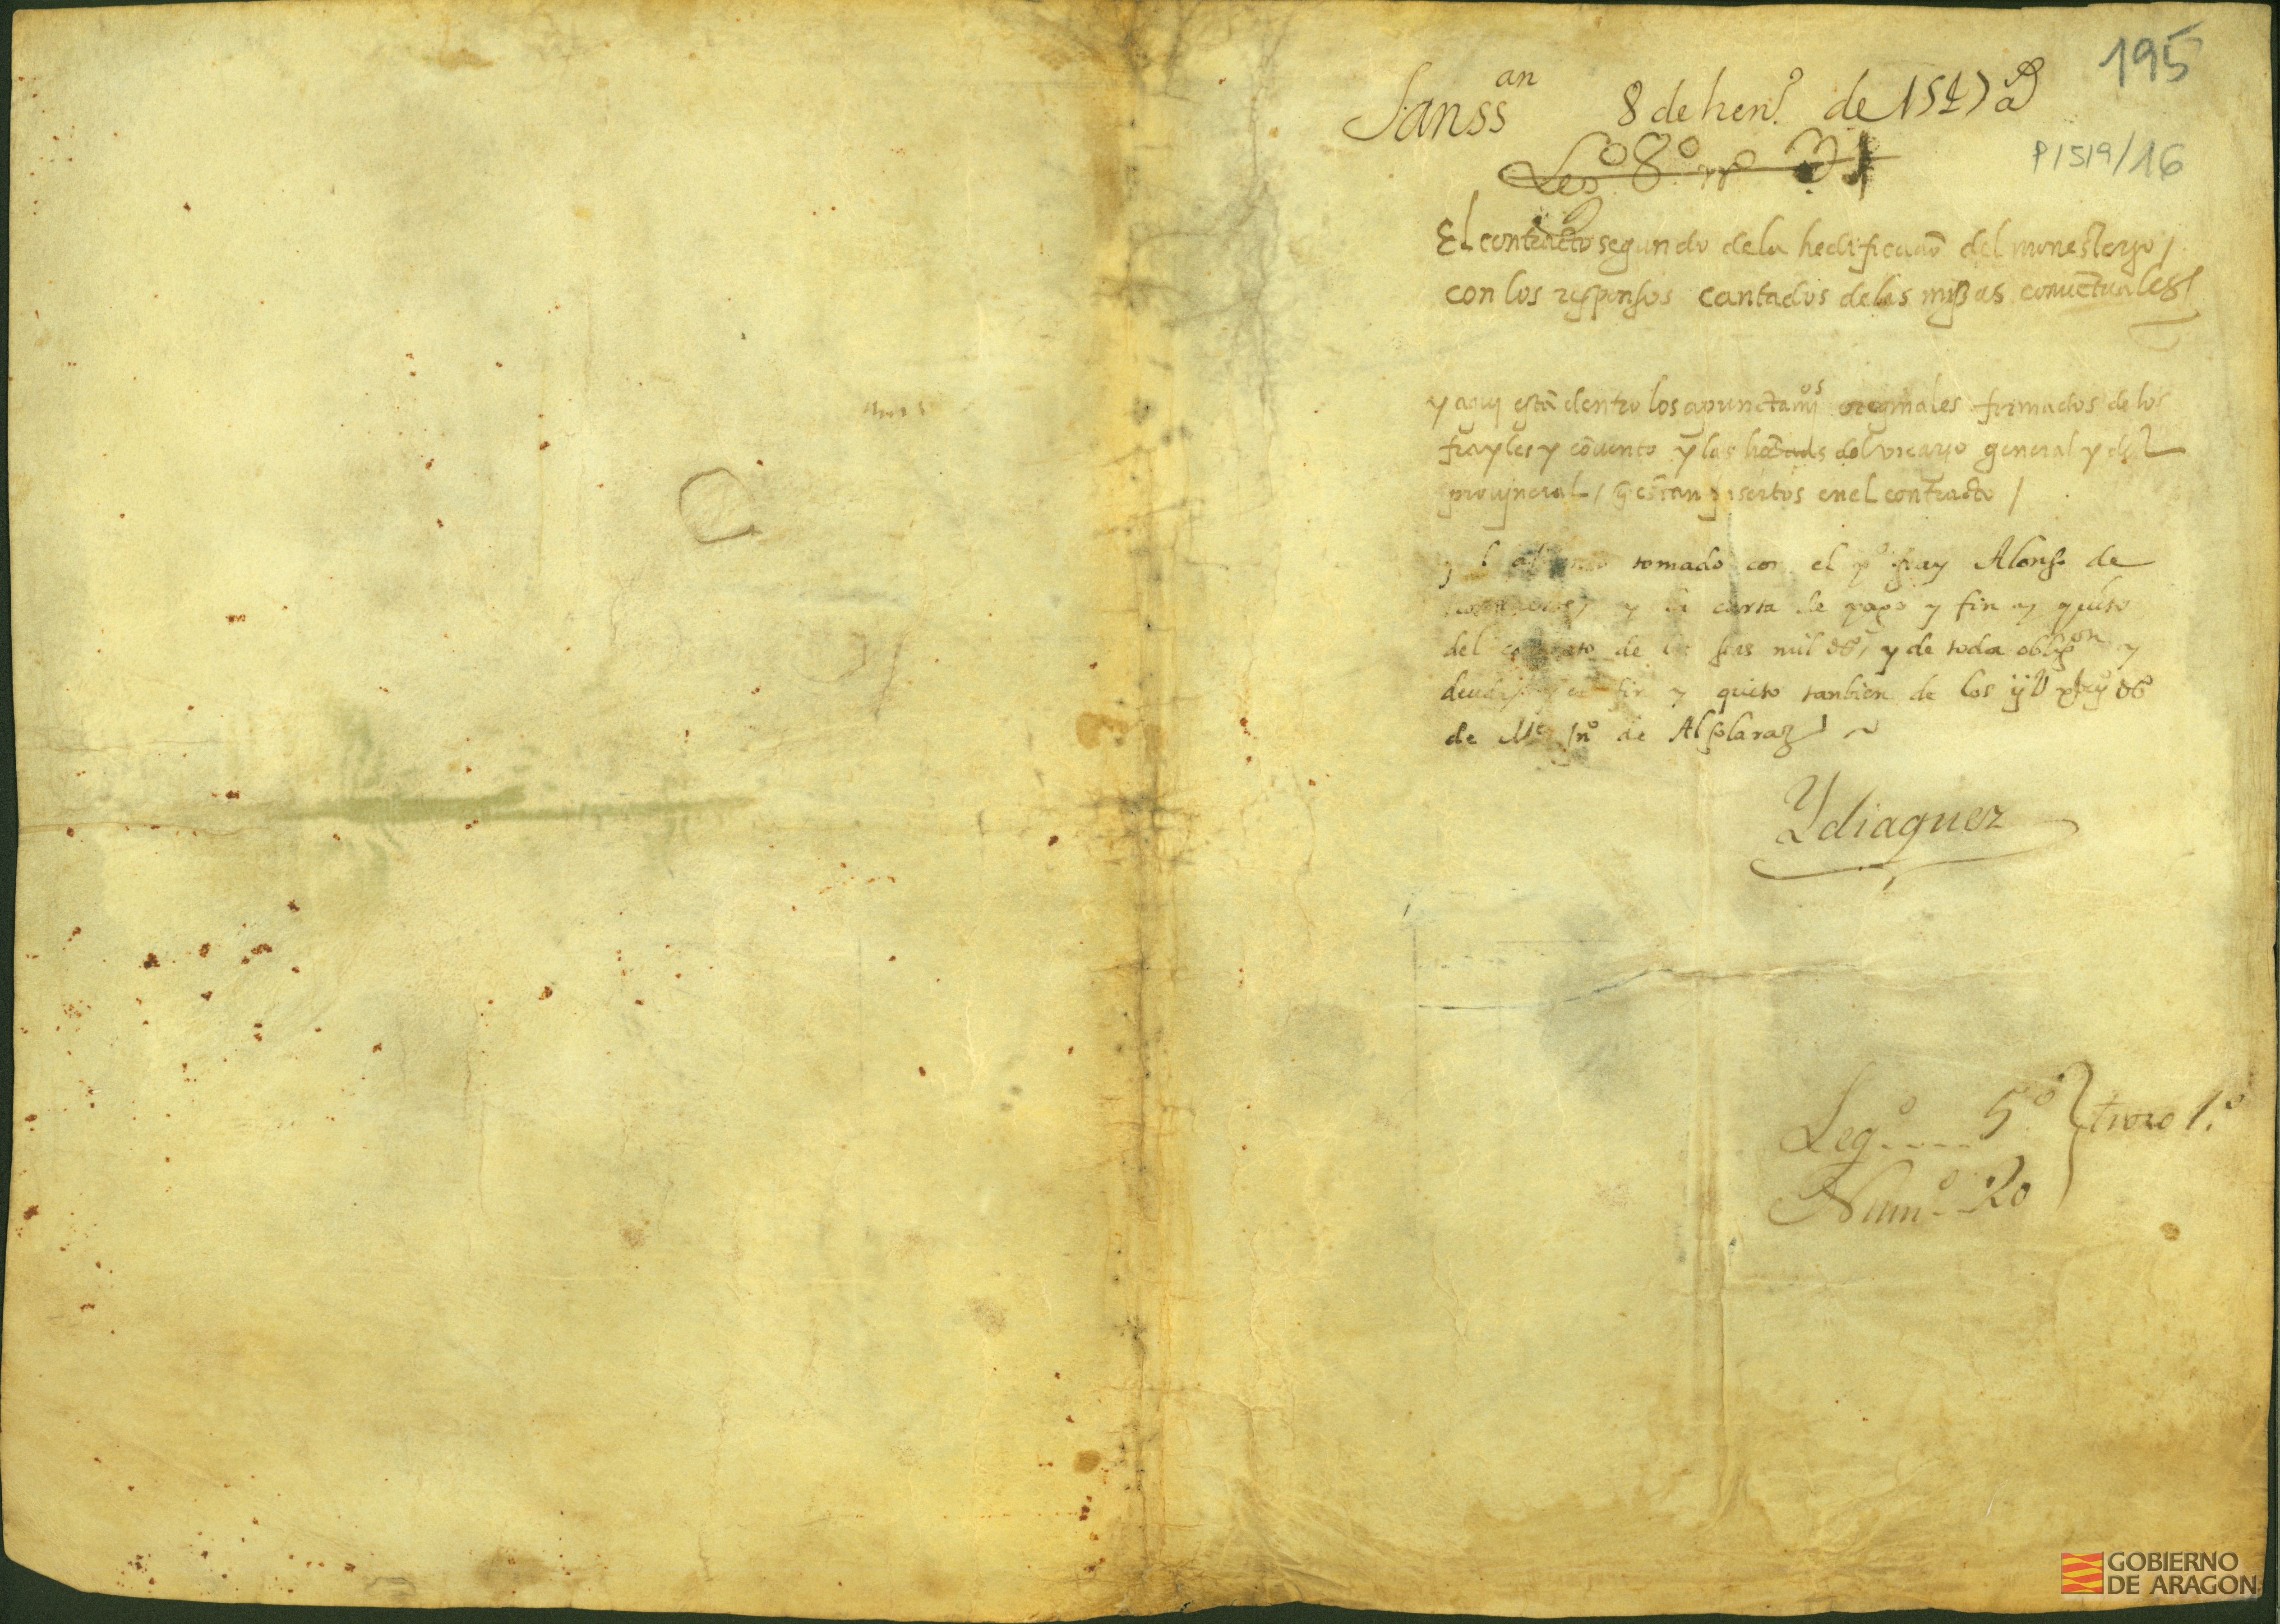 195
Sanss an 8 de hen.º de 1547 a
Leg.º 8º nº 31
P1519/16
El contracto segundo de la hedificaçiõ del monesteryo /
con los responsos cantados de las missas convẽtuales /
y aquj estã dentro los apunctamjos orejginales firmados de los
frayles y cõvento y las del vicaryo general y del
provjncial / q̃ estan jnsertos en el contracto /
tomado con el pº fray Alonso de
y la carta de pago y fin y quito
del de seis mil ds, y de toda obligon y
fin y quito tanbien de los ds
de Me Jnº de
Ydiaquez
Leg.º ---- 5º } trozo 1.º
Num.º 20
GOBIERNO
DE ARAGON